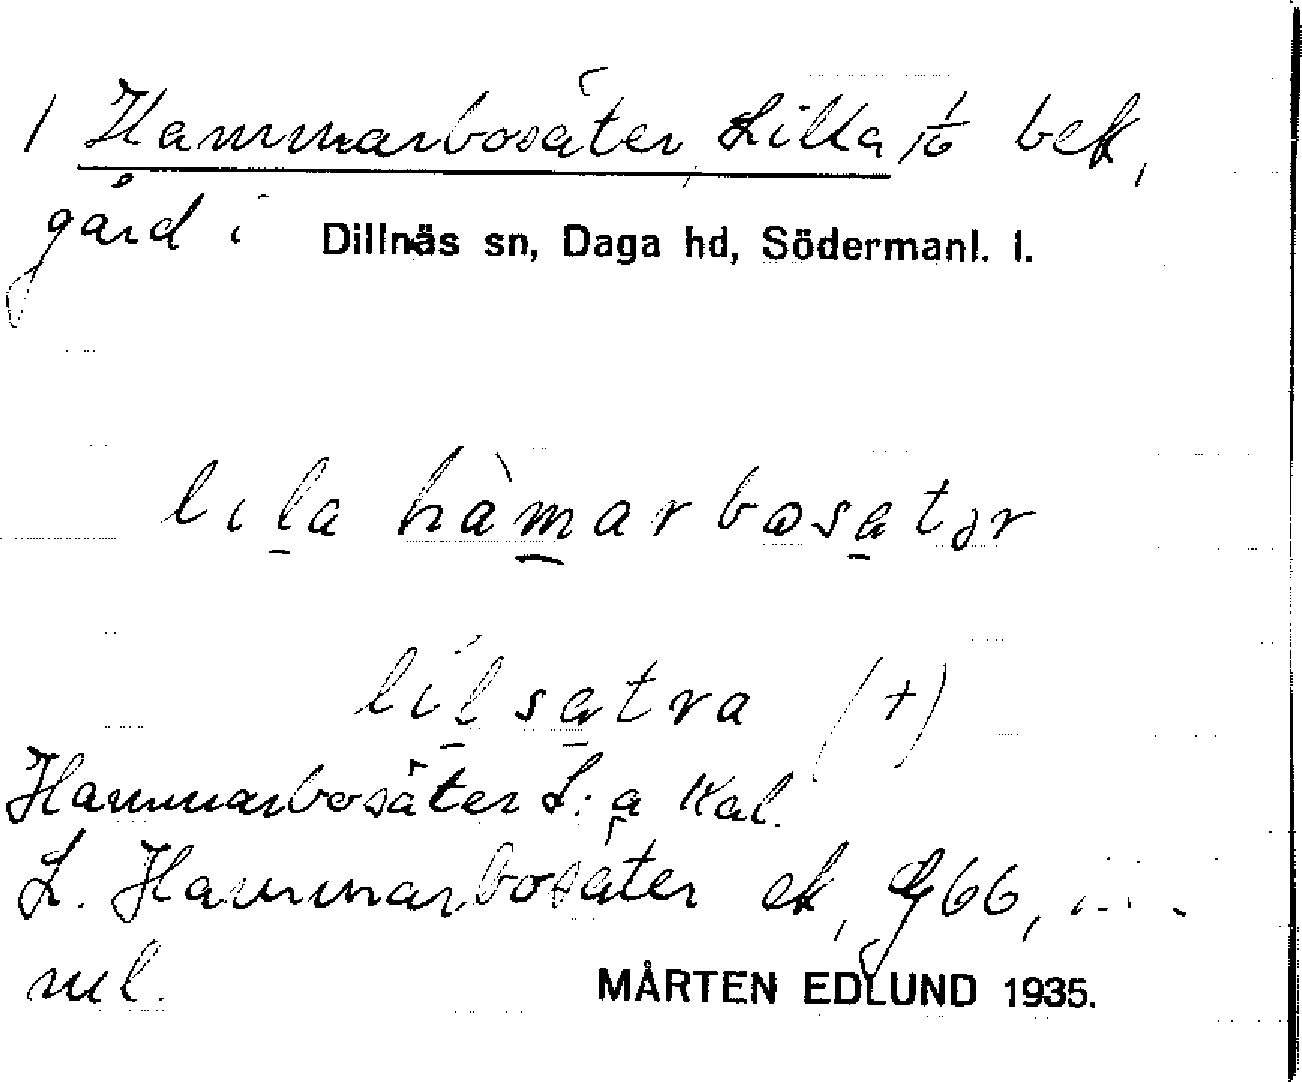 1 Hammarbosäter, Lilla 1/6 bek,
gård i Dillnäs sn, Daga hd, Södermanl. l.
lila hàmarbosatər
lílsatra (+)
Hammarbosäter L:a Kal.
L. Hammarbosäter ek, G66,
ml. MÅRTEN EDLUND 1935.